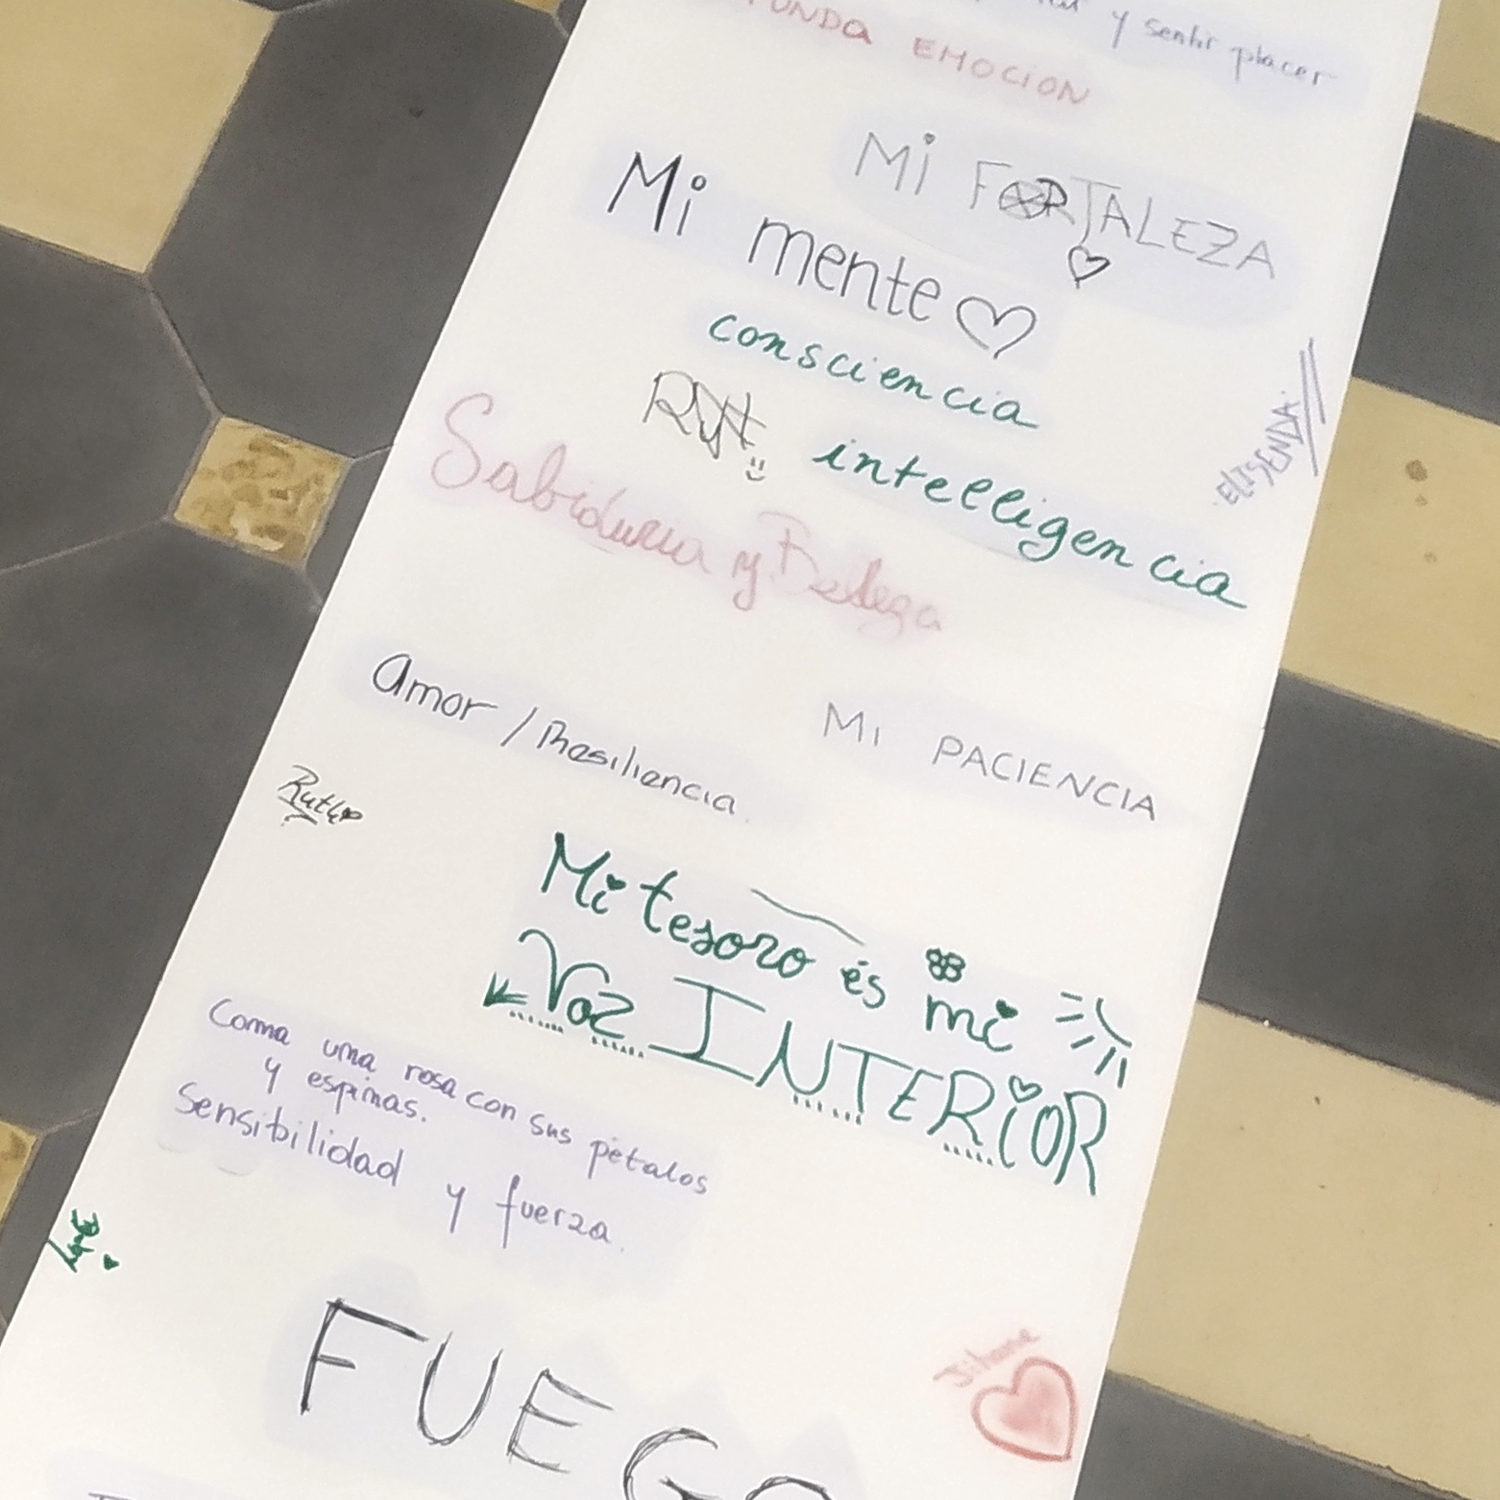 y sentir placer
EMOCION
Mi FORTALEZA
Mi mente
consciencia
ELISENDA
intelligencia
Sabiduria y Belleza
Amor / Resiliencia
Mi PACIENCIA
Ruth
Mi tesoro és mi
Voz INTERIOR
Como una rosa con sus pétalos
y espinas.
Sensibilidad y fuerza.
FUEGO